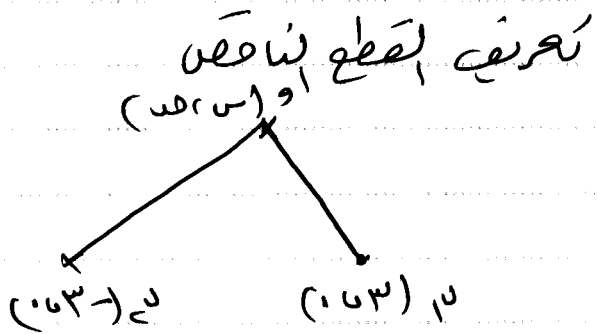 تعريف القطع الناقص
و (س، ص)
ب₁ (٣، ٠)
ب₂ (-٣، ٠)